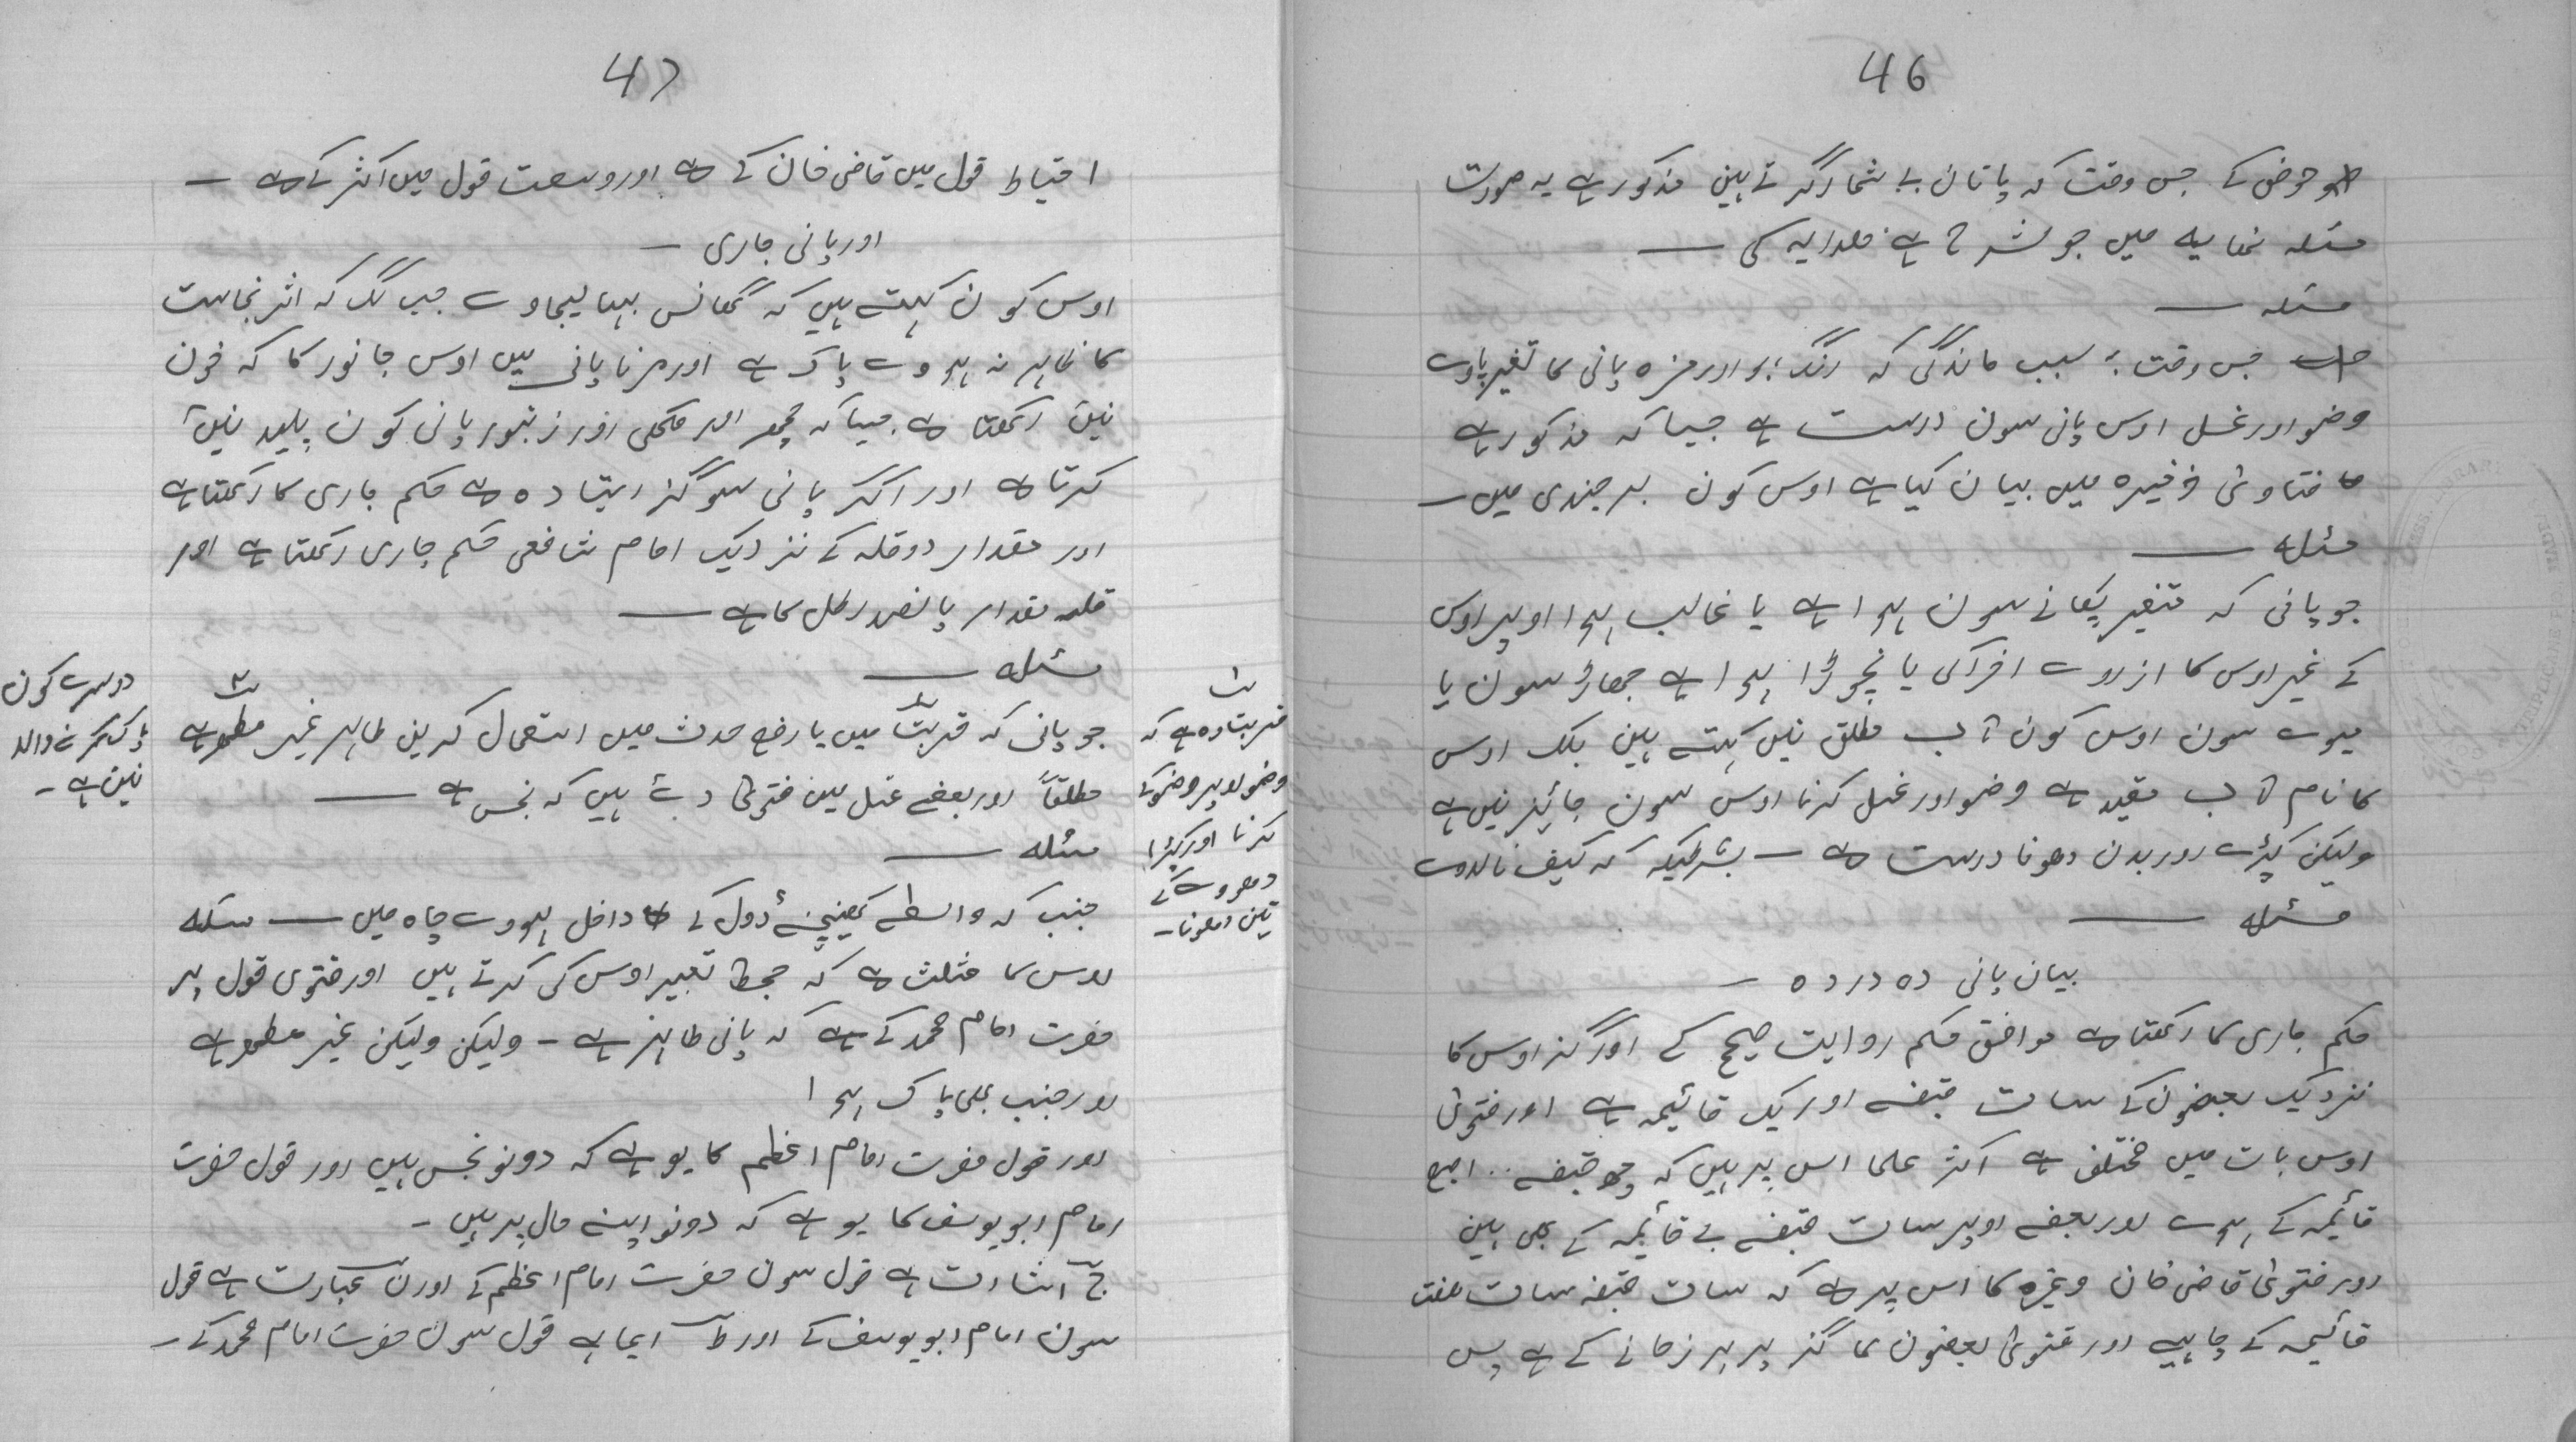 46
حوض کے جس وقت کہ پاتان بے شمار گرتے ہین مذکور ہے یہ صورت
مسئلہ نھایہ میں جو شرح ہے ھدایہ کی —
مسئلہ —
جس وقت بسبب ماندگی کہ رنگ بو اور مزہ پانی کا تغیر پاوے
وضو اور غسل اوس پانی سون درست ہے جیسا کہ مذکور ہے
فتاوئ ذخیرہ میں بیان کیا ہے اوس کون برجندی میں —
مسئلہ —
جو پانی کہ متغیر پکانے سون ہوا ہے یا غالب ہوا اوپر اوس
کے غیر اوس کا از روے اجزا کی یا نچوڑا ہوا ہے جھاڑ سون یا
میوے سون اوس کون آب مطلق نیں کہتے ہین بلک اوس
کا نام آب مقید ہے وضو اور غسل کرنا اوس سون جائیز نیں ہے
ولیکن کپڑے اور بدن دھونا درست ہے — بشرطیکہ کہ کیف نالاوے
مسئلہ —
بیان پانی دہ در دہ —
حکم جاری کا رکھتا ہے موافق حکم روایت صحیح کے اور گز اوس کا
نزدیک بعضون کے سات قبضہ اور یک قائیمہ ہے اور فتویٰ
اوس بات میں مختلف ہے اکثر علما اس پر ہیں کہ چھ قبضہ .. ابہع
قائیمہ کے ہوے اور بعضے اوپر سات قبضہ بے قائیمہ کے بھی ہین
اور فتویٰ قاضی خان وغیرہ کا اس پر ہے کہ سات قبضہ سات ھفت
قائیمہ کے چاہیے اور فتویٰ بعضون کا گز پر ہر زمانے کے ہے پس
47
احتیاط قول میں قاضی خان کے ہے اور وسعت قول میں اکثر کے ہے —
اور پانی جاری —
اوس کون کہتے ہیں کہ گھانس بہا لیجاوے جب لگ کہ اثر نجاست
کا ظاہر نہ ہووے پاک ہے اور مرنا پانی میں اوس جانور کا کہ خون
نیں رکھتا ہے. جیسا کہ مچھر اور مکھی اور زنبور پانی کون پلید نیں
کرتا ہے اور اگر پانی سو گز ایتادہ ہے حکم جاری کا رکھتا ہے
اور مقدار دو قلہ کے نزدیک امام شافعی حکم جاری رکھتا ہے اور
قلہ مقدار پانصد رطل کا ہے —
مسئلہ —
جو پانی کہ قربت میں یا رفع حدث میں استعمال کرین طاہر غیر مطھر ہے
مطلقاً اور بعضے عمل میں فتویٰ دے ہیں کہ نجس ہے —
مسئلہ —
جنب کہ واسطے کھینچنے ڈول کے داخل ہووے چاہ میں — مسئلہ
اوس کا مثلث ہے کہ جحط تعبیر اوس کی کرتے ہیں اور فتوی قول پر
حضرت امام محمد کے ہے کہ پانی طاہر ہے – ولیکن ولیکن غیر مطھر ہے
اور جنب بھی پاک ہوا
اور قول حضرت امام اعظم کا یو ہے کہ دونو نجس ہیں اور قول حضرت
امام ابو یوسف کا یو ہے کہ دونو اپنے حال پر ہیں –
ج اشارت ہے قول سون حضرت امام اعظم کے اور عبارت ہے قول
سون امام ابو یوسف کے اور ط ایما ہے قول سون حضرت امام محمد کے –
قربت وہ ہے کہ
وضو اوپر وضو کے
کرنا اور کپڑا
دھووے کے
تین دھونا –
دوسرے کون
پاک کرنے والا
نین ہے –